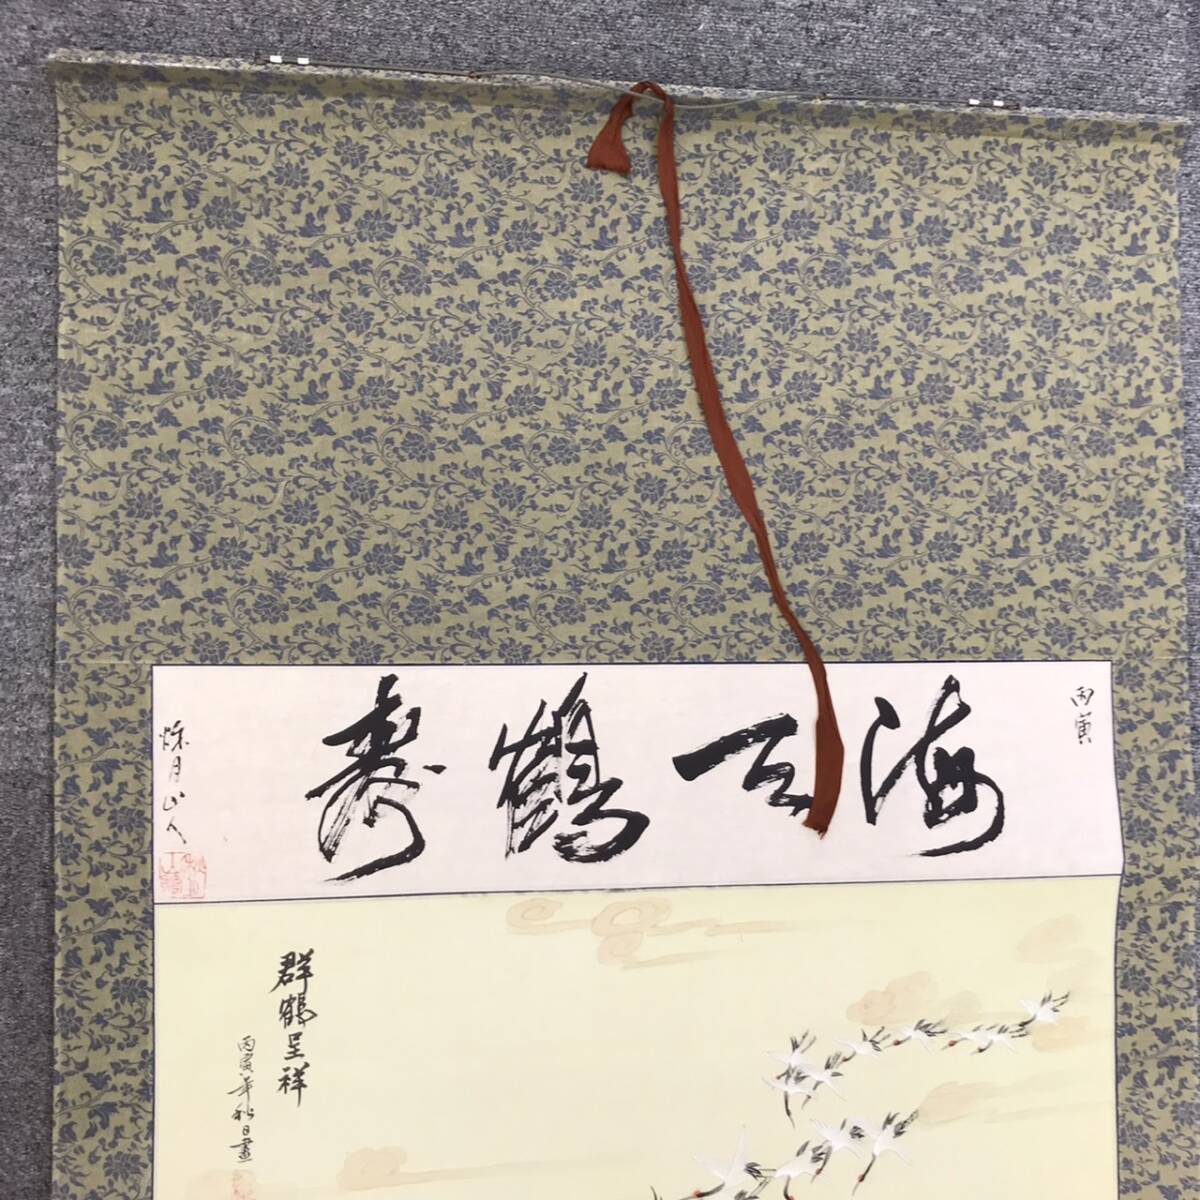 丙寅
海天鶴寿
烁月山人
群鶴呈祥
丙寅年秋日畫